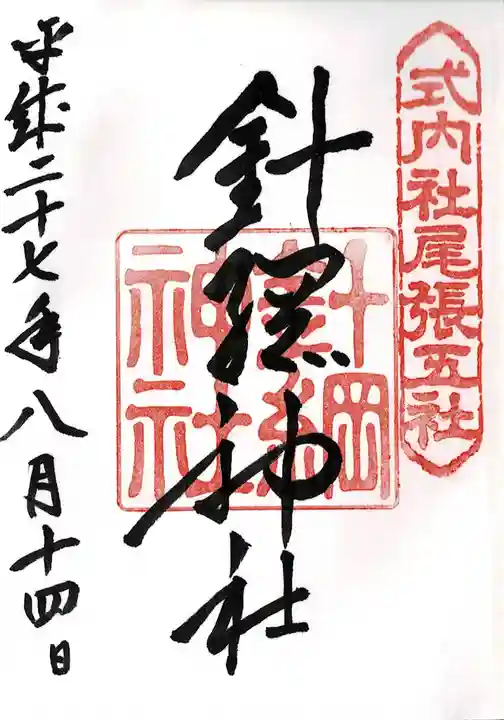 式内社尾張五社
針綱神社
針綱神社
平成二十七年八月十四日